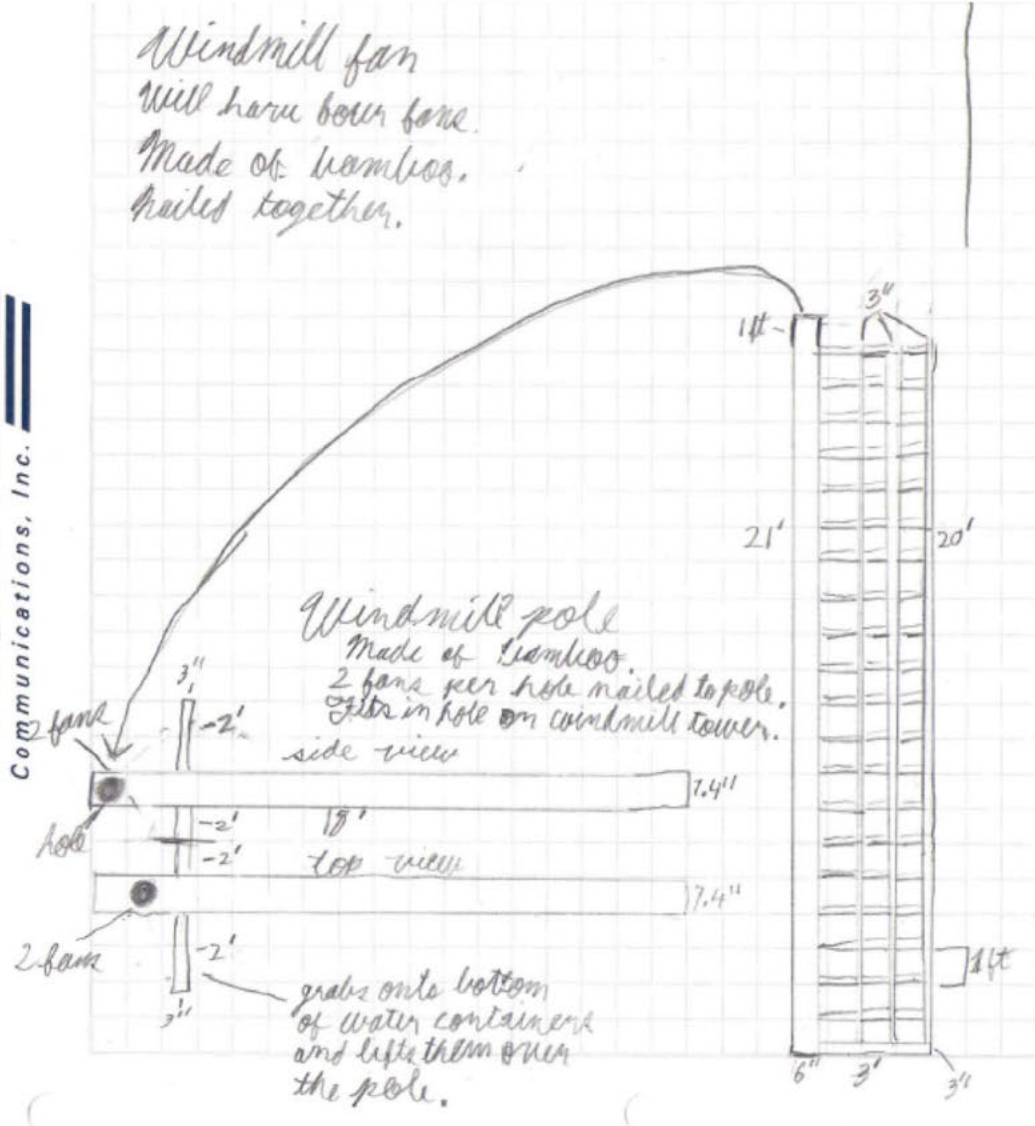 Windmill fan
Will have four fans.
Made of bamboo.
Nailed together.
Communications, Inc.
1ft-
3"
21'
20'
Windmill pole
Made of bamboo.
2 fans per hole nailed to pole.
Fits in hole on windmill tower.
3"
-2'
2 fans
side view
7.4"
hole
-2'
18'
-2'
top view
7.4"
2 fans
-2'
3"
grabs onto bottom
of water containers
and lifts them over
the pole.
1ft
6"
3'
3"